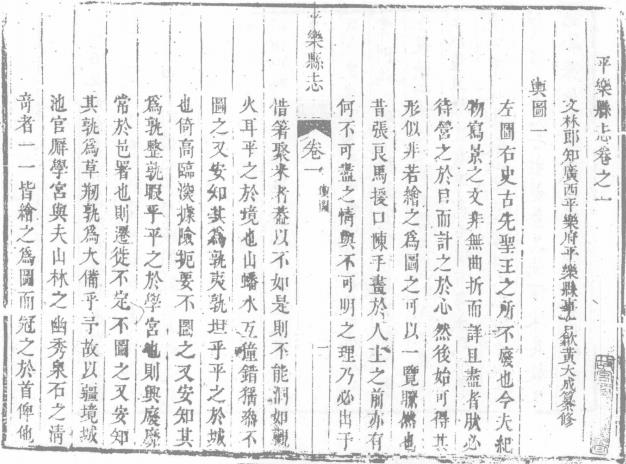 平樂縣志卷之一
文林郎知廣西平樂府平樂縣事古歙黃大成纂修
輿圖一
左圖右史古先聖王之所不廢也今夫紀
物寫景之文非無曲折而詳且盡者狀必
待營之於目而計之於心然後始可得其
形似非若繪之爲圖之可以一覽瞭然也
昔張良馬援口陳手畫於人主之前亦有
何不可盡之情與不可明之理乃必出于
平樂縣志
卷一
輿圖
一
借箸聚米者蓋以不如是則不能洞如觀
火耳平之於境也山蟠水互獞錯猺雜不
圖之又安知其爲孰夷孰坦乎平之於城
也倚高臨深據險扼要不圖之又安知其
爲孰整孰暇乎平之於學宮也則興廢靡
常於邑署也則遷徙不定不圖之又安知
其孰爲草剏孰爲大備乎予故以疆境城
池官廨學宮與夫山林之幽秀泉石之清
竒者一一皆繪之爲圖而冠之於首俾他